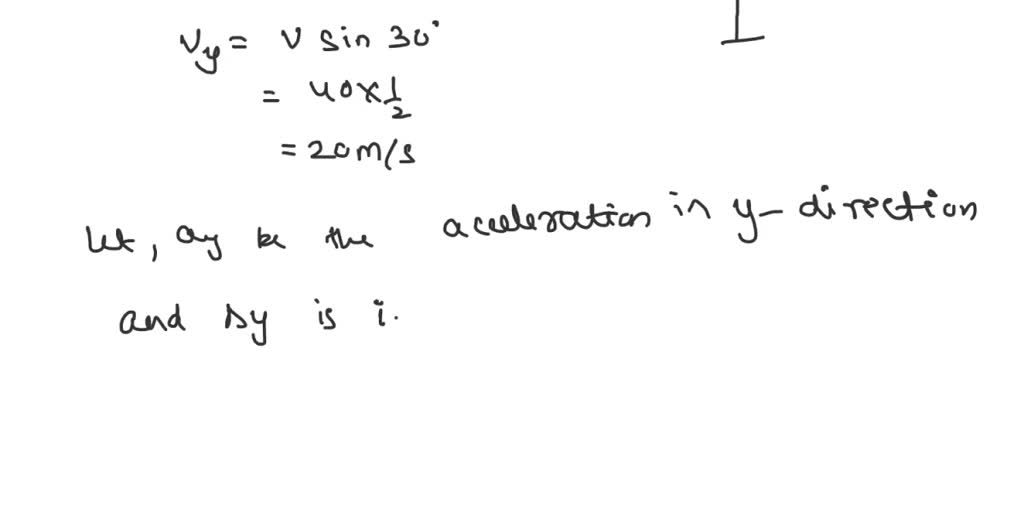 Vy = V sin 30°
= 40 × 1/2
= 20 m/s
let, ay be the acceleration in y-direction
and Δy is i.